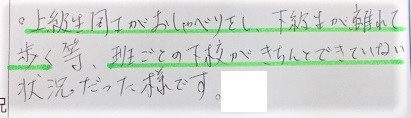 。上級生同士がおしゃべりをし、下級生が離れて
歩く等、班ごとの下校がきちんとできていない
状況だった様です。